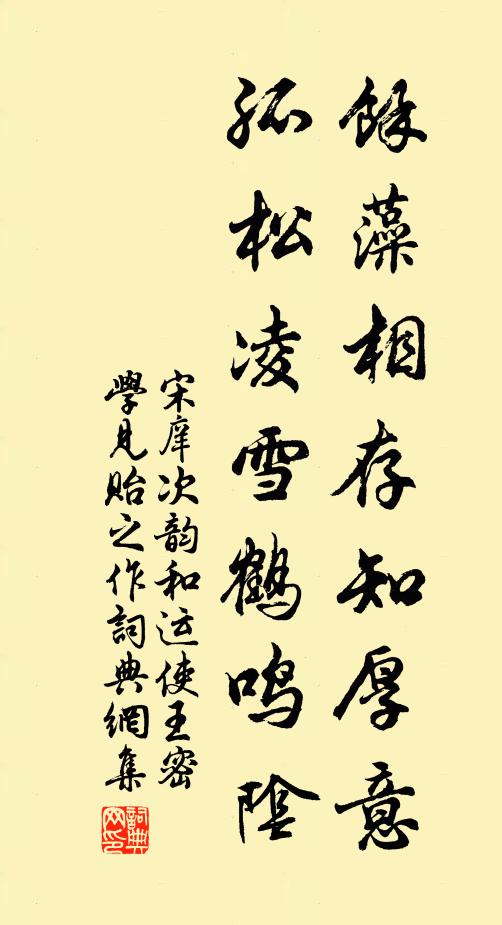 餘藻相存知厚意
孤松凌雪鶴鳴陰
宋庠次韵和运使王密
學見貽之作詞典網集
詞典网印